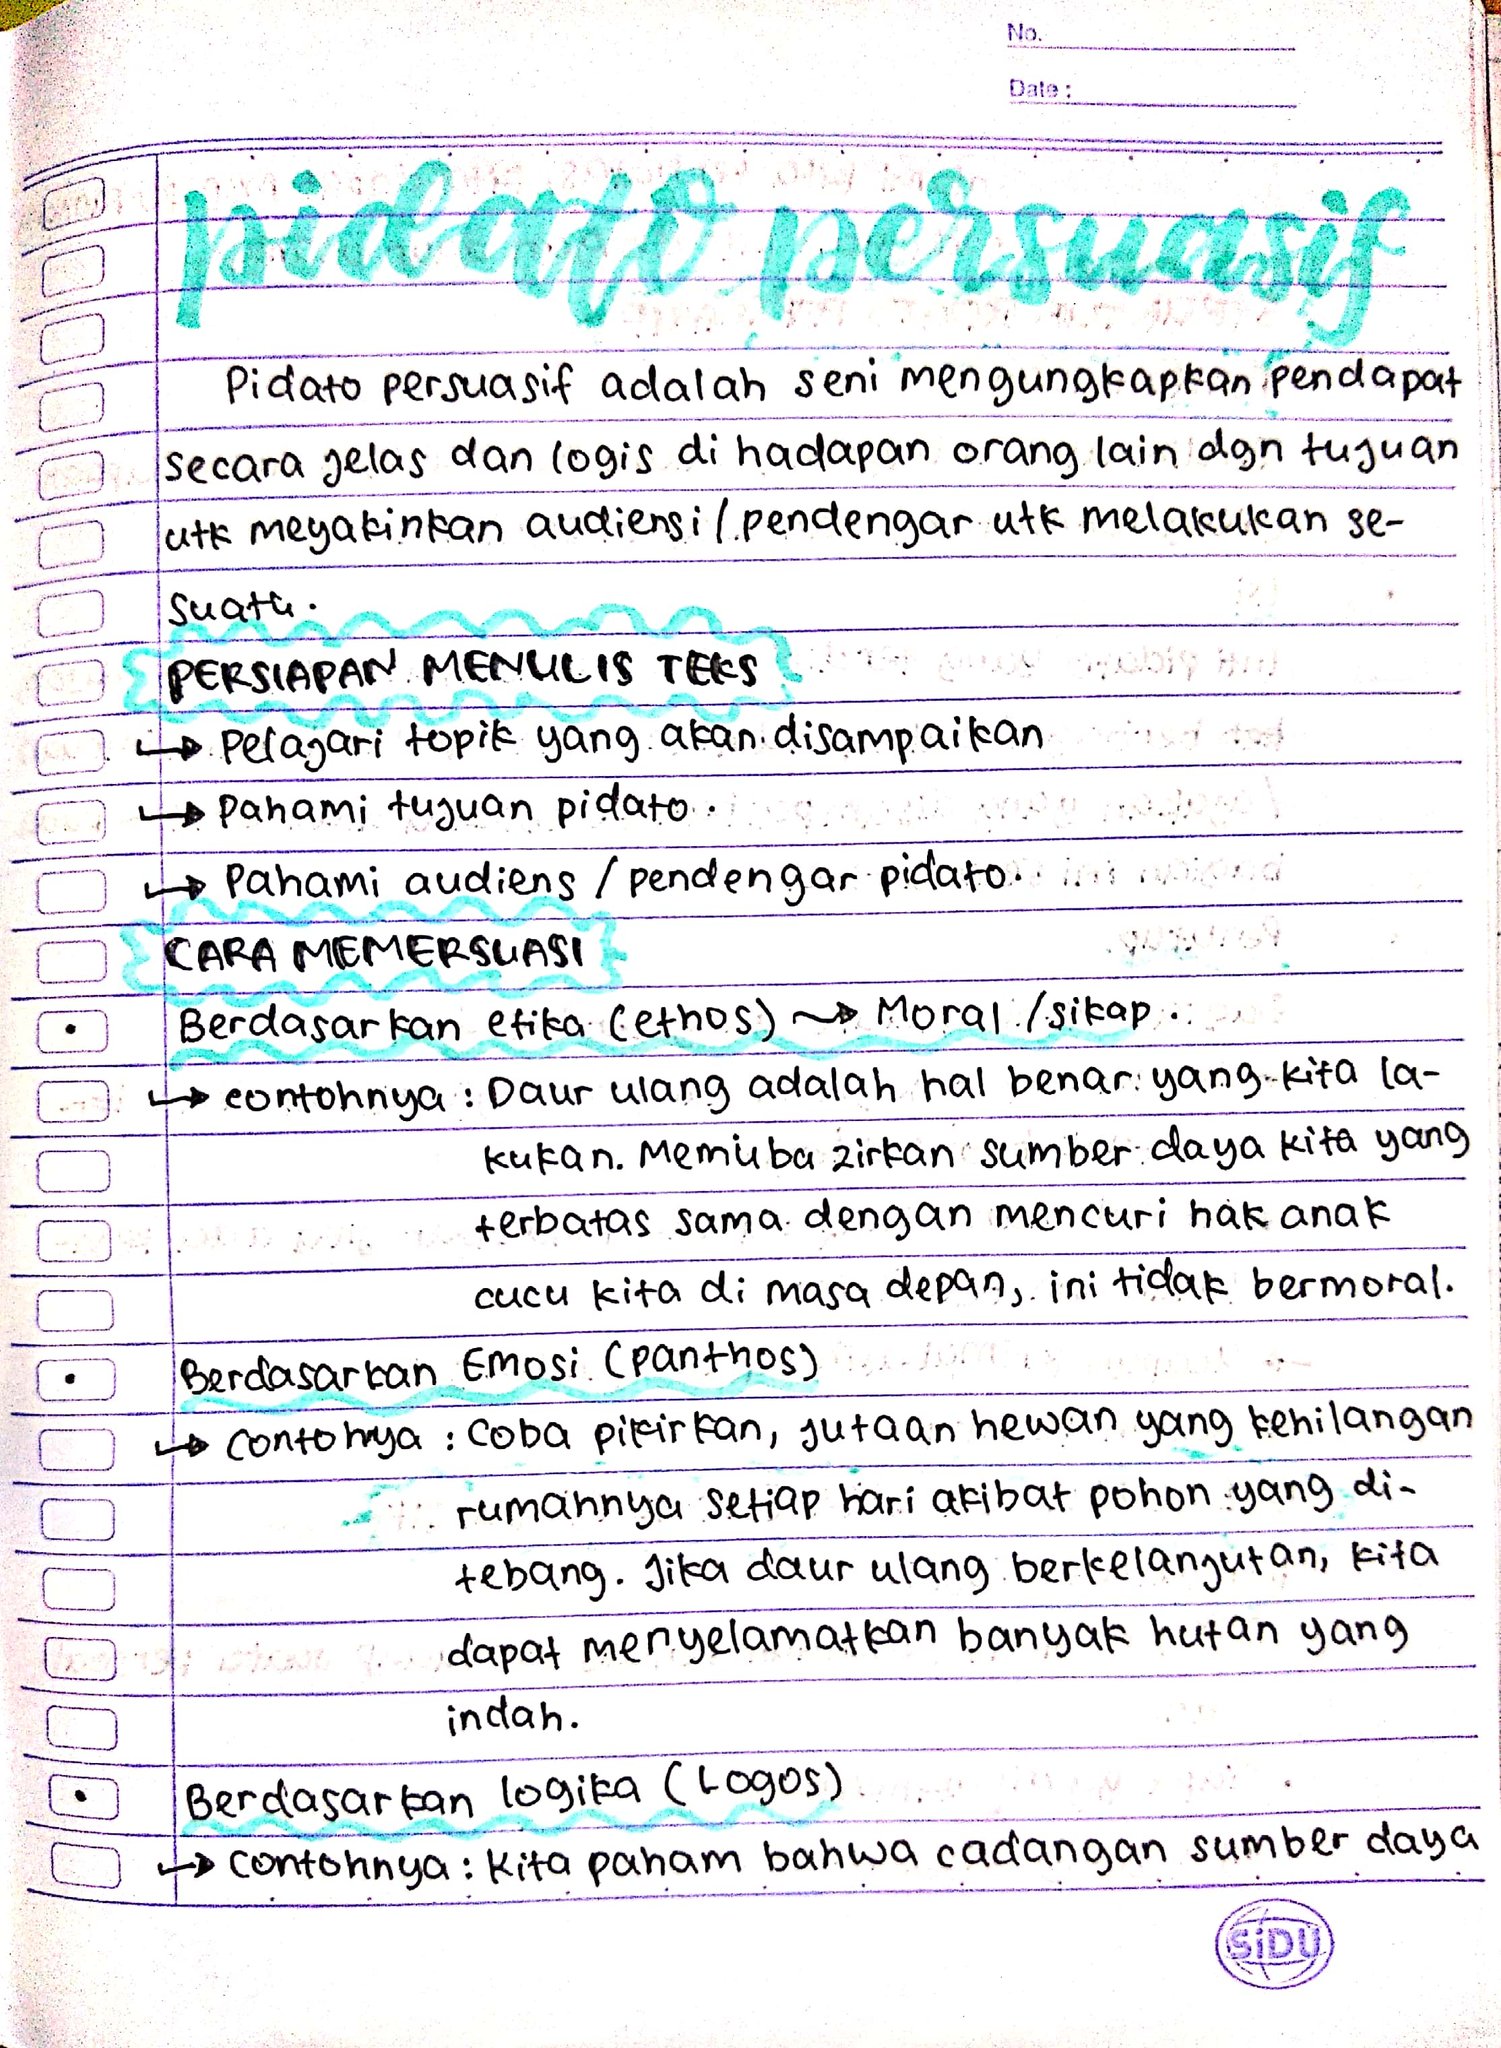 No.
Date :
pidato persuasif
Pidato persuasif adalah seni mengungkapkan pendapat
secara jelas dan logis di hadapan orang lain dgn tujuan
utk meyakinkan audiensi / pendengar utk melakukan se-
suatu.
PERSIAPAN MENULIS TEKS
↳ Pelajari topik yang akan disampaikan
↳ Pahami tujuan pidato.
↳ Pahami audiens / pendengar pidato.
CARA MEMERSUASI
• Berdasarkan etika (ethos) → Moral / sikap.
↳ contohnya : Daur ulang adalah hal benar yang kita la-
kukan. Memuba zirkan sumber daya kita yang
terbatas sama dengan mencuri hak anak
cucu kita di masa depan, ini tidak bermoral.
• Berdasarkan Emosi (panthos)
↳ contohnya : Coba pikirkan, jutaan hewan yang kehilangan
rumahnya setiap hari akibat pohon yang di-
tebang. Jika daur ulang berkelanjutan, kita
dapat menyelamatkan banyak hutan yang
indah.
• Berdasarkan logika (Logos)
↳ contohnya : Kita paham bahwa cadangan sumber daya
SiDU